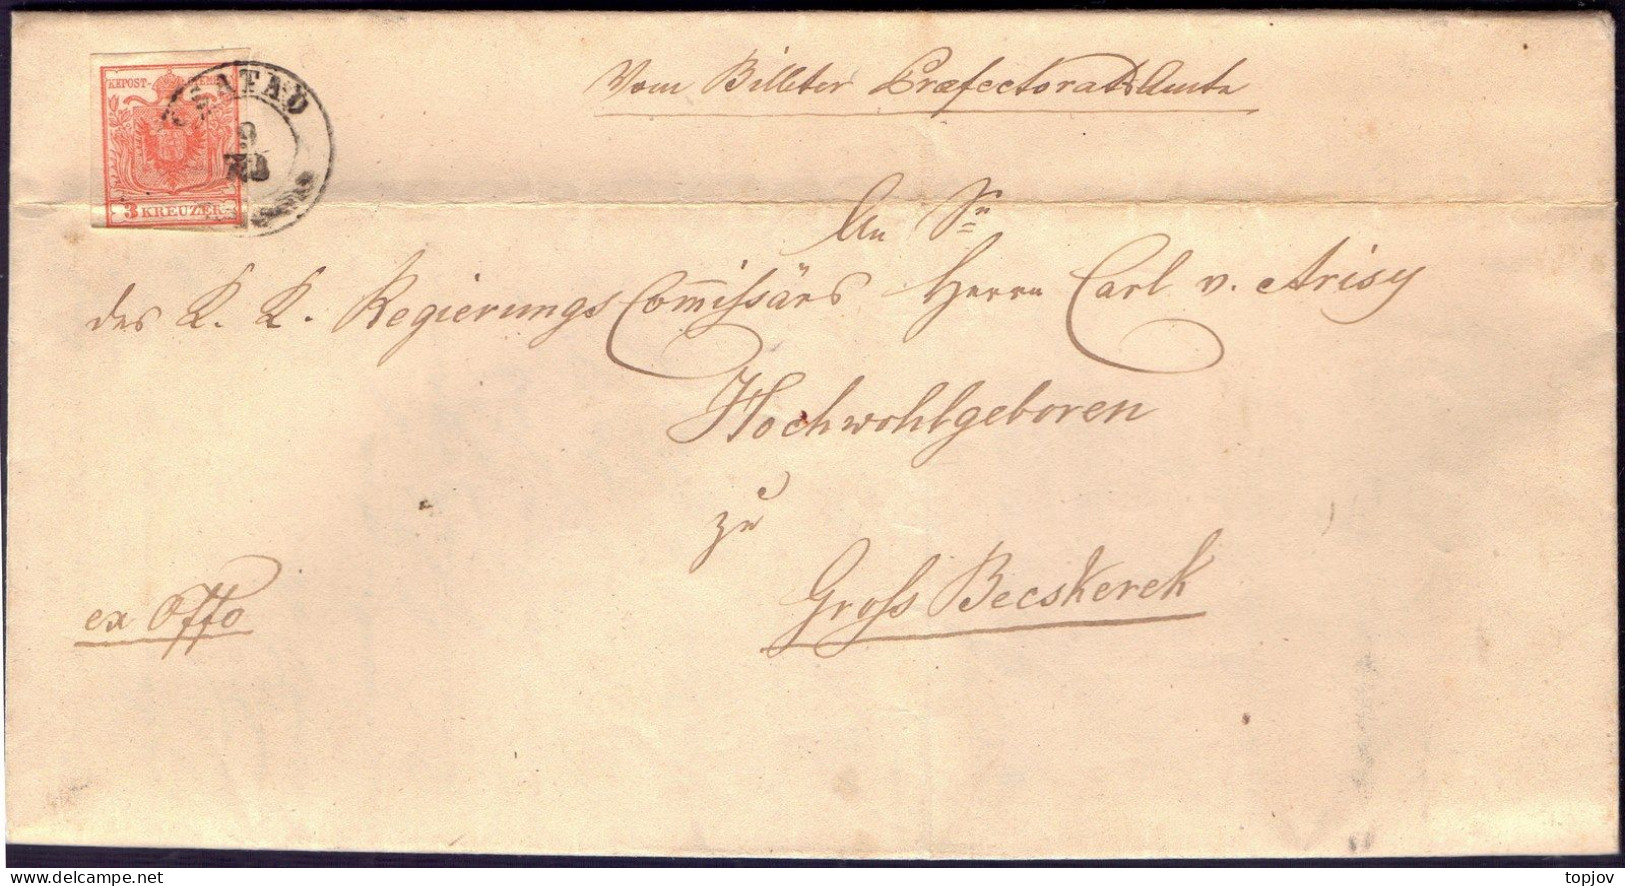 KKPOST-STEMPEL
CSATAD
9
3 KREUZER
Vom Billeter Præfectorats Amte
An Sr
des K. K. Regierungs Commissärs Herrn Carl v. Arisy
Hochwohlgeboren
zu
Gross Becskerek
ex Offo
delcampe.net
topjov